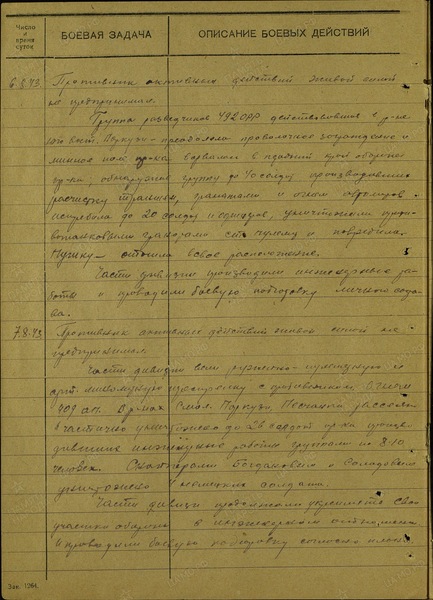 Число и время суток
БОЕВАЯ ЗАДАЧА
ОПИСАНИЕ БОЕВЫХ ДЕЙСТВИЙ
6.8.43. Противник активных действий живой силой
не предпринимал.
Группа разведчиков 492 ОРР действовавшая в р-не
преодолела проволочное заграждение и
минное поле пр-ка ворвалась в передний край обороны
пр-ка, обнаружив группу до 40 солдат производивших
расчистку траншеи, гранатами и огнем автоматов
истребила до 20 солдат и офицеров,
гранатами ст. пулемет и повредила
пушку – отошла в свое расположение.
Части дивизии производили инженерные ра-
боты и проводили боевую подготовку личного соста-
ва.
7.8.43 Противник активных действий живой силой не
предпринимал.
Части дивизии вели ружейно-пулеметную и
арт. минометную перестрелку с противником. Огнем
409 ап. в р-нах рассеяно
и частично уничтожено до 26 солдат пр-ка произво-
дивших инженерные работы группами по 8-10
человек. Снайперами Богдановым и Солодовым
уничтожено немецких солдата.
Части дивизии продолжали укреплять свои
участки обороны в инженерном отношении
и проводили боевую подготовку согласно плана.
Зак. 1264.